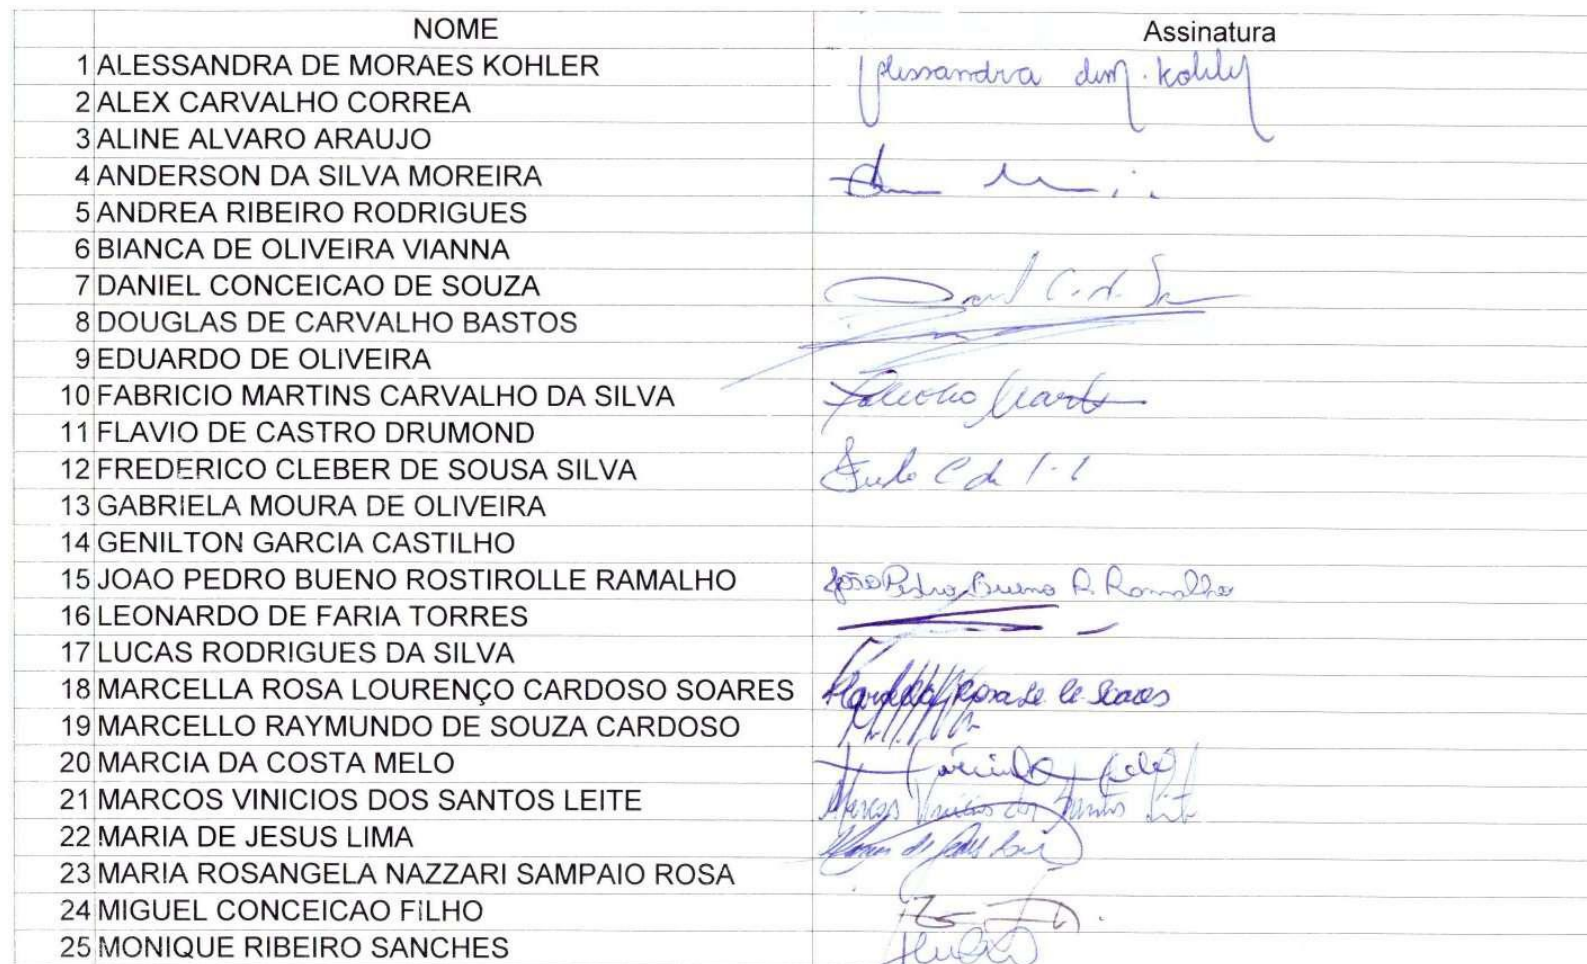 NOME Assinatura
1 ALESSANDRA DE MORAES KOHLER Alessandra de M. Kohler
2 ALEX CARVALHO CORREA
3 ALINE ALVARO ARAUJO
4 ANDERSON DA SILVA MOREIRA
5 ANDREA RIBEIRO RODRIGUES
6 BIANCA DE OLIVEIRA VIANNA
7 DANIEL CONCEICAO DE SOUZA
8 DOUGLAS DE CARVALHO BASTOS
9 EDUARDO DE OLIVEIRA
10 FABRICIO MARTINS CARVALHO DA SILVA
11 FLAVIO DE CASTRO DRUMOND
12 FREDERICO CLEBER DE SOUSA SILVA
13 GABRIELA MOURA DE OLIVEIRA
14 GENILTON GARCIA CASTILHO
15 JOAO PEDRO BUENO ROSTIROLLE RAMALHO João Pedro Bueno R. Ramalho
16 LEONARDO DE FARIA TORRES
17 LUCAS RODRIGUES DA SILVA
18 MARCELLA ROSA LOURENÇO CARDOSO SOARES
19 MARCELLO RAYMUNDO DE SOUZA CARDOSO
20 MARCIA DA COSTA MELO
21 MARCOS VINICIOS DOS SANTOS LEITE Marcos Vinicios dos Santos Leite
22 MARIA DE JESUS LIMA
23 MARIA ROSANGELA NAZZARI SAMPAIO ROSA
24 MIGUEL CONCEICAO FILHO
25 MONIQUE RIBEIRO SANCHES